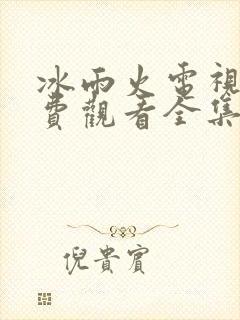 冰雨火電視
費觀看全集
倪貴賓